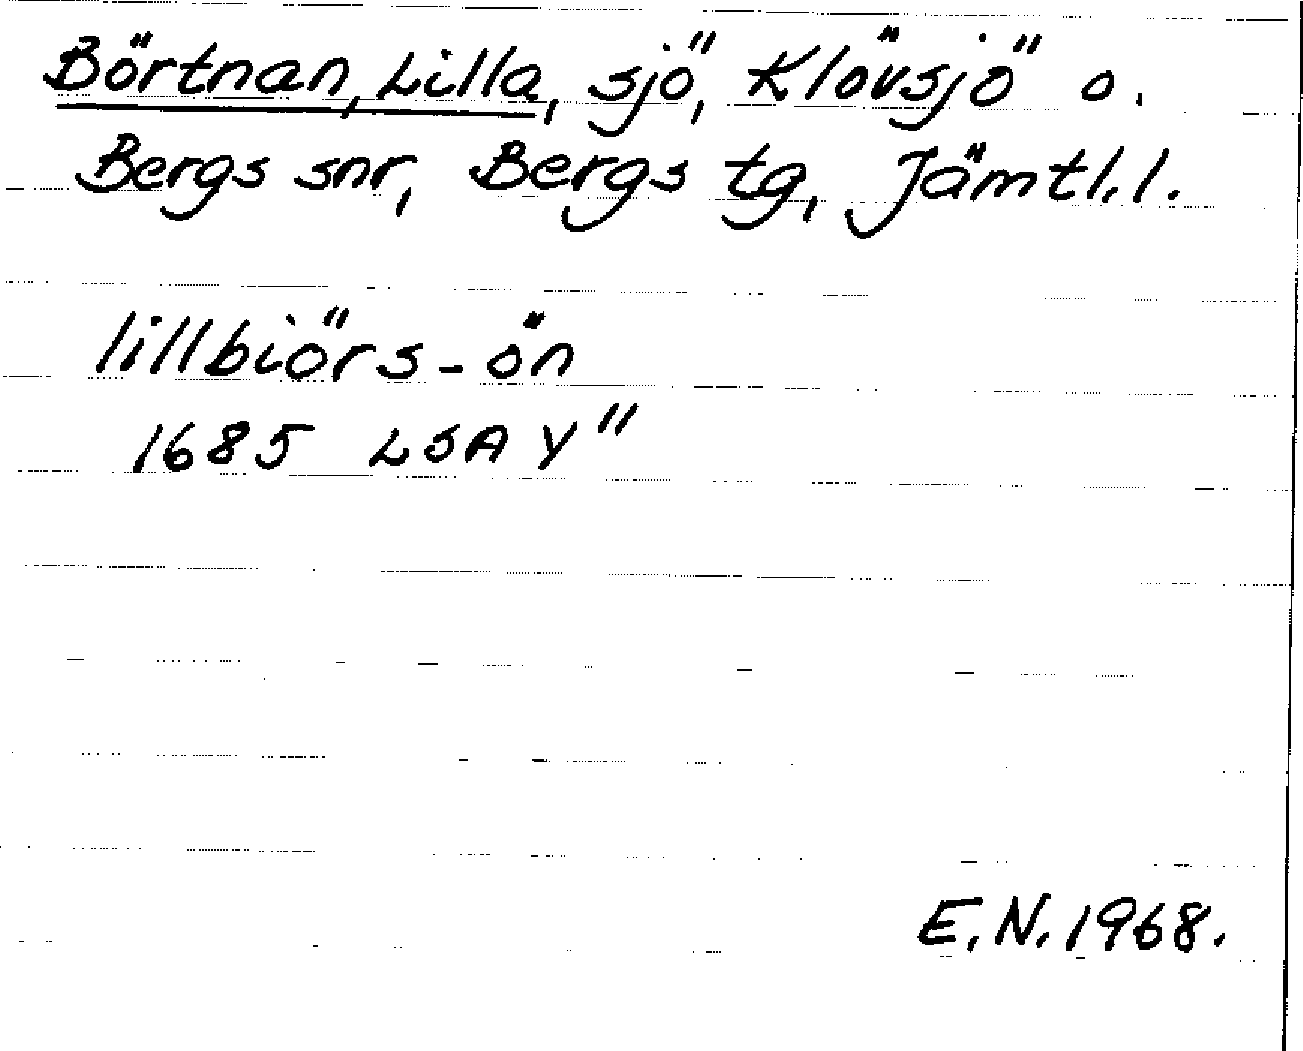 Börtnan, Lilla, sjö, Klövsjö o.
Bergs snr, Bergs tg, Jämtl.l.
lillbiörs-ön
1685 LSA Y"
E.N. 1968.